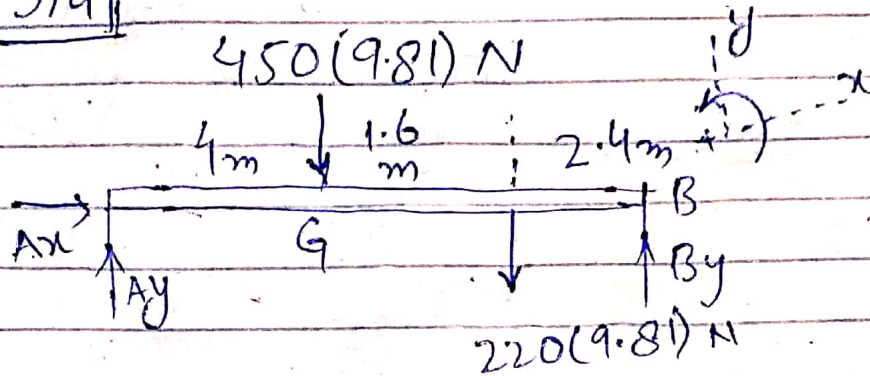 3/4
450(9.81) N
y
x
4m
1.6
m
2.4m
+
B
Ax
G
Ay
By
220(9.81) N